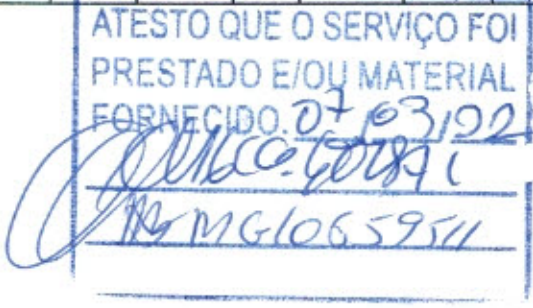 ATESTO QUE O SERVIÇO FOI
PRESTADO E/OU MATERIAL
FORNECIDO. 07/03/22
MG10659511